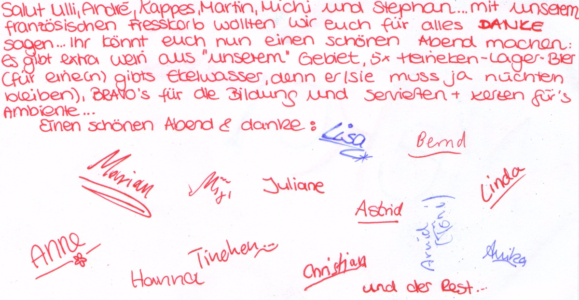 Salut Ulli, André, Kappes, Martin, Michi und Stephan... mit unserem
französischen Fresskorb wollten wir euch für alles DANKE
sagen... Ihr könnt euch nun einen schönen Abend machen:
Es gibt extra wein aus "unserem" Gebiet, 5x Heineken-Lager-Bier
(für eine(n) gibts Ekelwasser, denn er/sie muss ja nüchtern
bleiben), BRAVO's für die Bildung und Servietten + Kerzen für's
Ambiente...
Einen schönen Abend & danke: Lisa
Bernd
Marian
Juliane
Linda
Astrid
Arnid
(Töni)
Anne
Tinchen
Anika
Hanna
Christian
und der Rest...